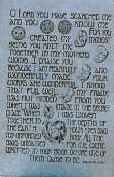 O LORD YOU HAVE SEARCHED ME
AND YOU KNOW ME
FOR YOU
CREATED MY INMOST
BEING YOU KNIT ME
TOGETHER IN MY MOTHERS
WOMB I PRAISE YOU
BECAUSE I AM FEARFULLY
AND WONDERFULLY MADE
YOUR WORKS ARE
WONDERFUL I KNOW
THAT FULL WELL MY
FRAME WAS NOT HIDDEN
FROM YOU
WHEN I WAS MADE IN THE SECRET
PLACE WHEN I WAS WOVEN
TOGETHER IN THE DEPTHS
OF THE EARTH YOUR EYES SAW
MY UNFORMED BODY ALL THE
DAYS ORDAINED FOR ME WERE
WRITTEN IN YOUR BOOK BEFORE ONE OF
THEM CAME TO BE